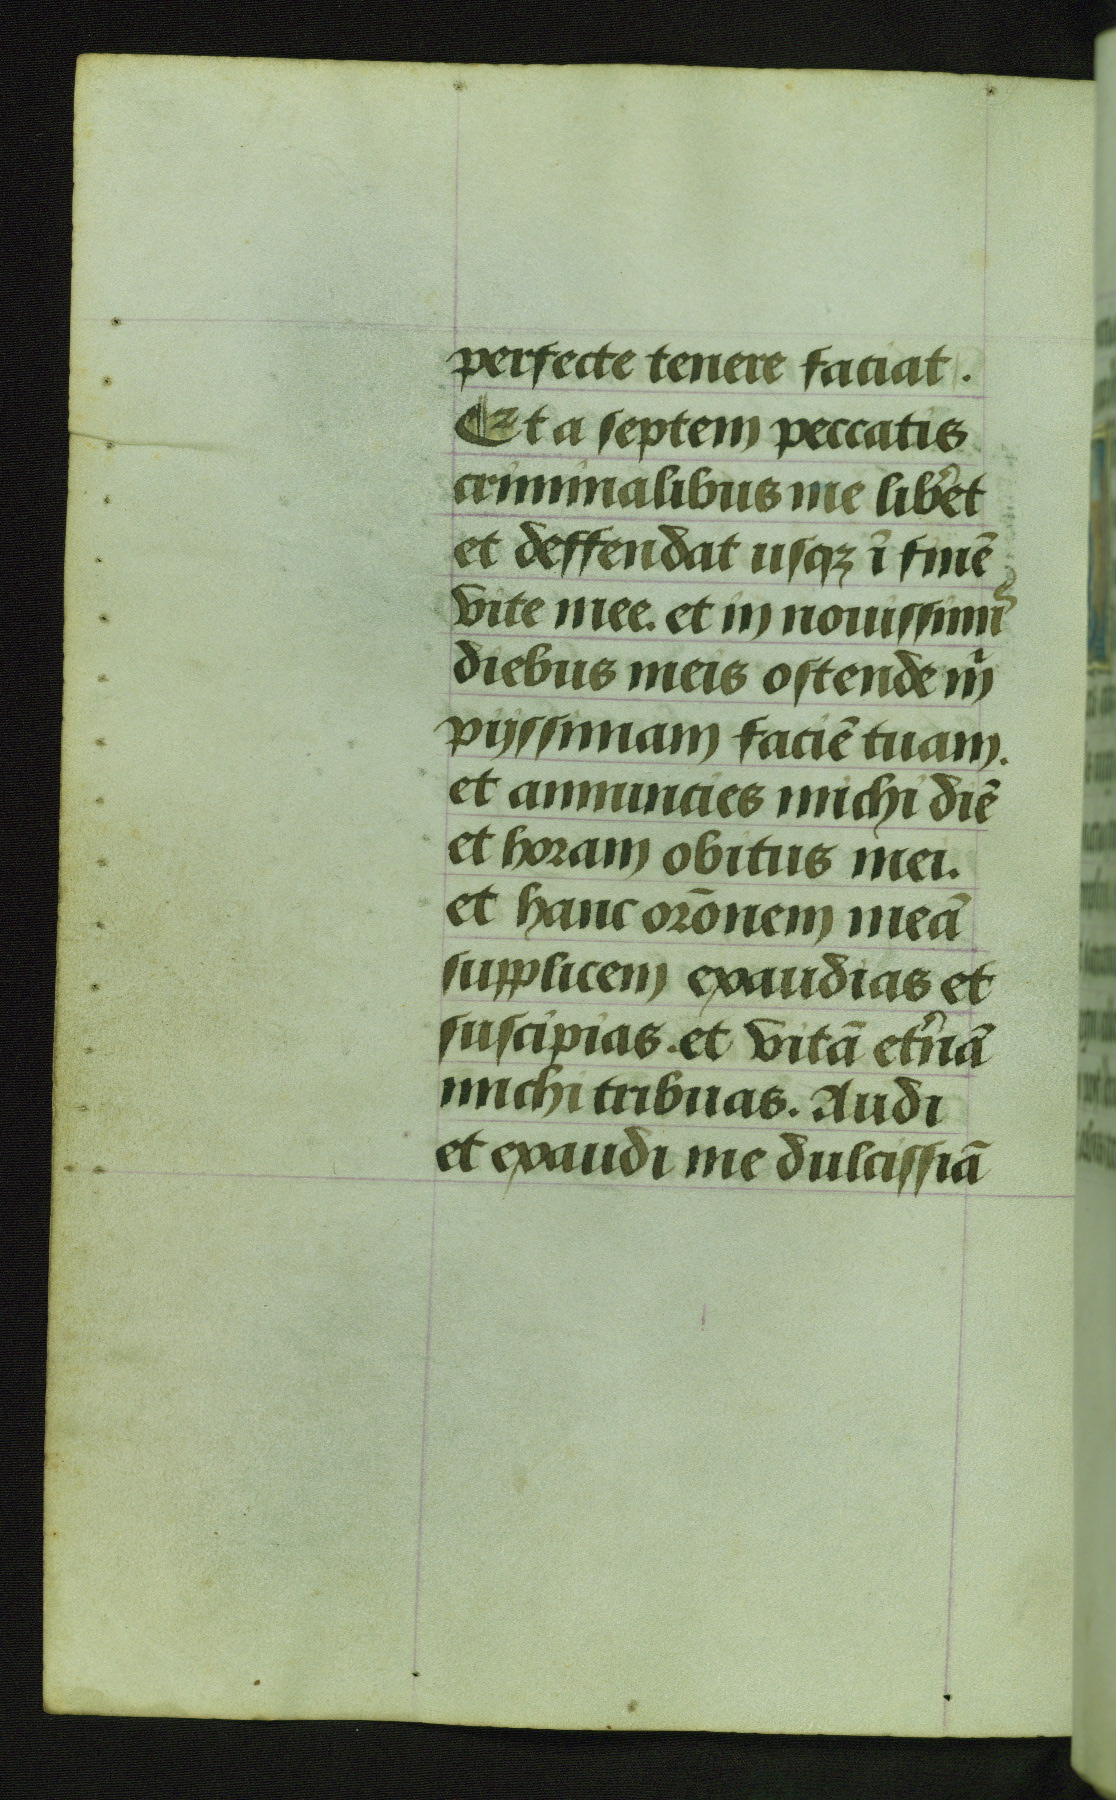 perfecte tenere faciat.
Et a septem peccatis
criminalibus me lib̾et
et deffendat usqꝫ ī finē
vite mee. et in nouissimi᷒
diebus meis ostende m̄
pijssimam faciē tuam.
et annuncies michi diē
et horam obitus mei.
et hanc orōnem meā
supplicem exaudias et
suscipias. et vitā et̾nā
michi tribuas. Audi
et exaudi me dulcissiā